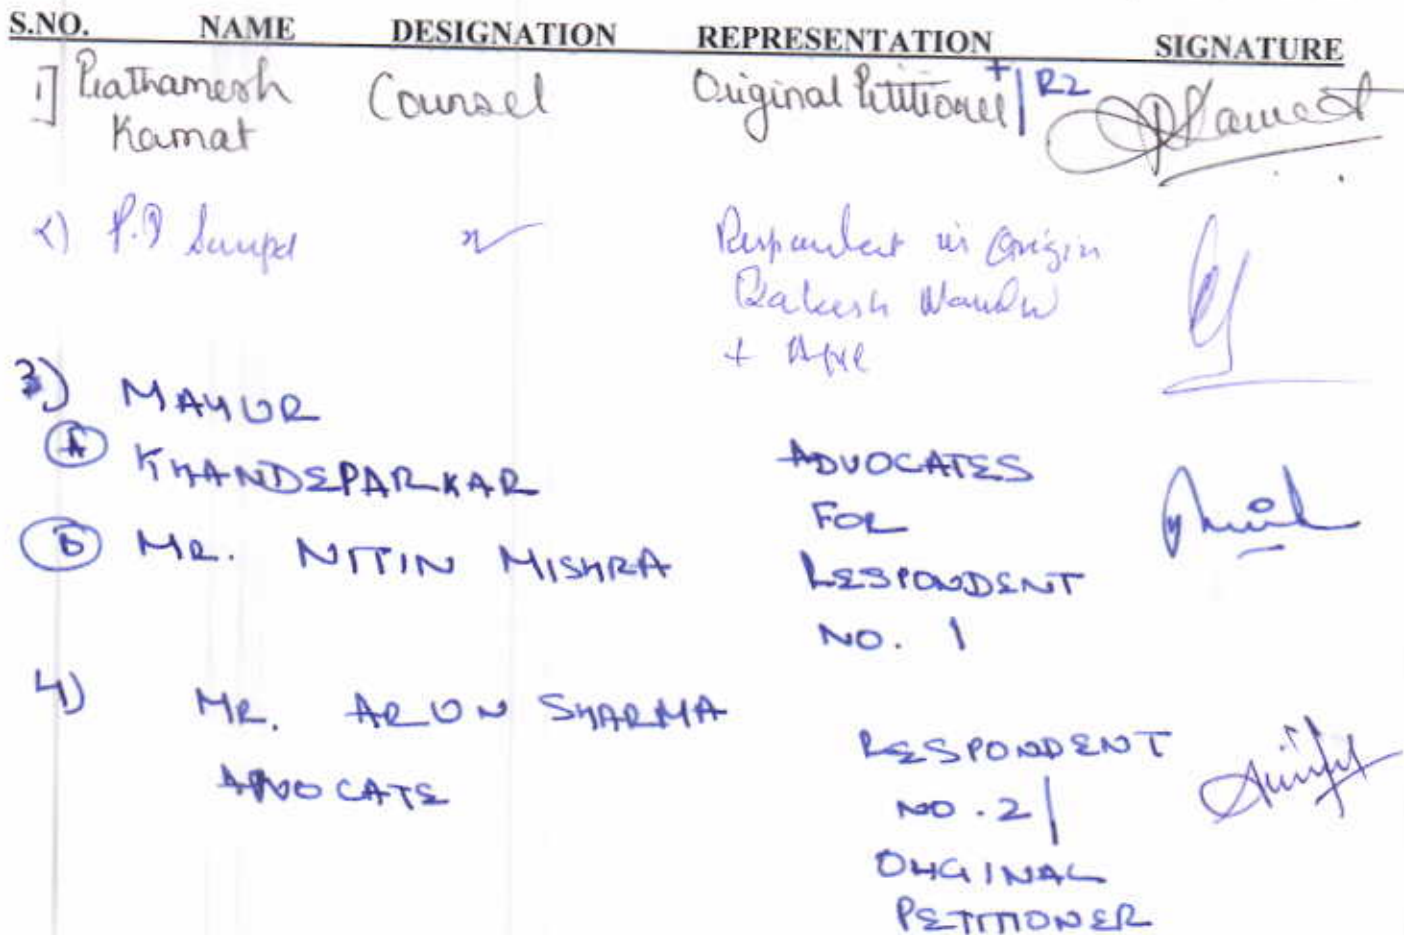 S.NO. NAME DESIGNATION REPRESENTATION SIGNATURE
1] Prathamesh Kamat Counsel Original Petitioner + | R2
2) P.D
Respondent in Origin
Rakesh
+
3) MAYUR
(A) KHANDEPARKAR ADVOCATES
FOR
(B) MR. NITIN MISHRA RESPONDENT
NO. 1
4) MR. ARUN SHARMA
ADVOCATE
RESPONDENT
NO. 2 |
ORIGINAL
PETITIONER